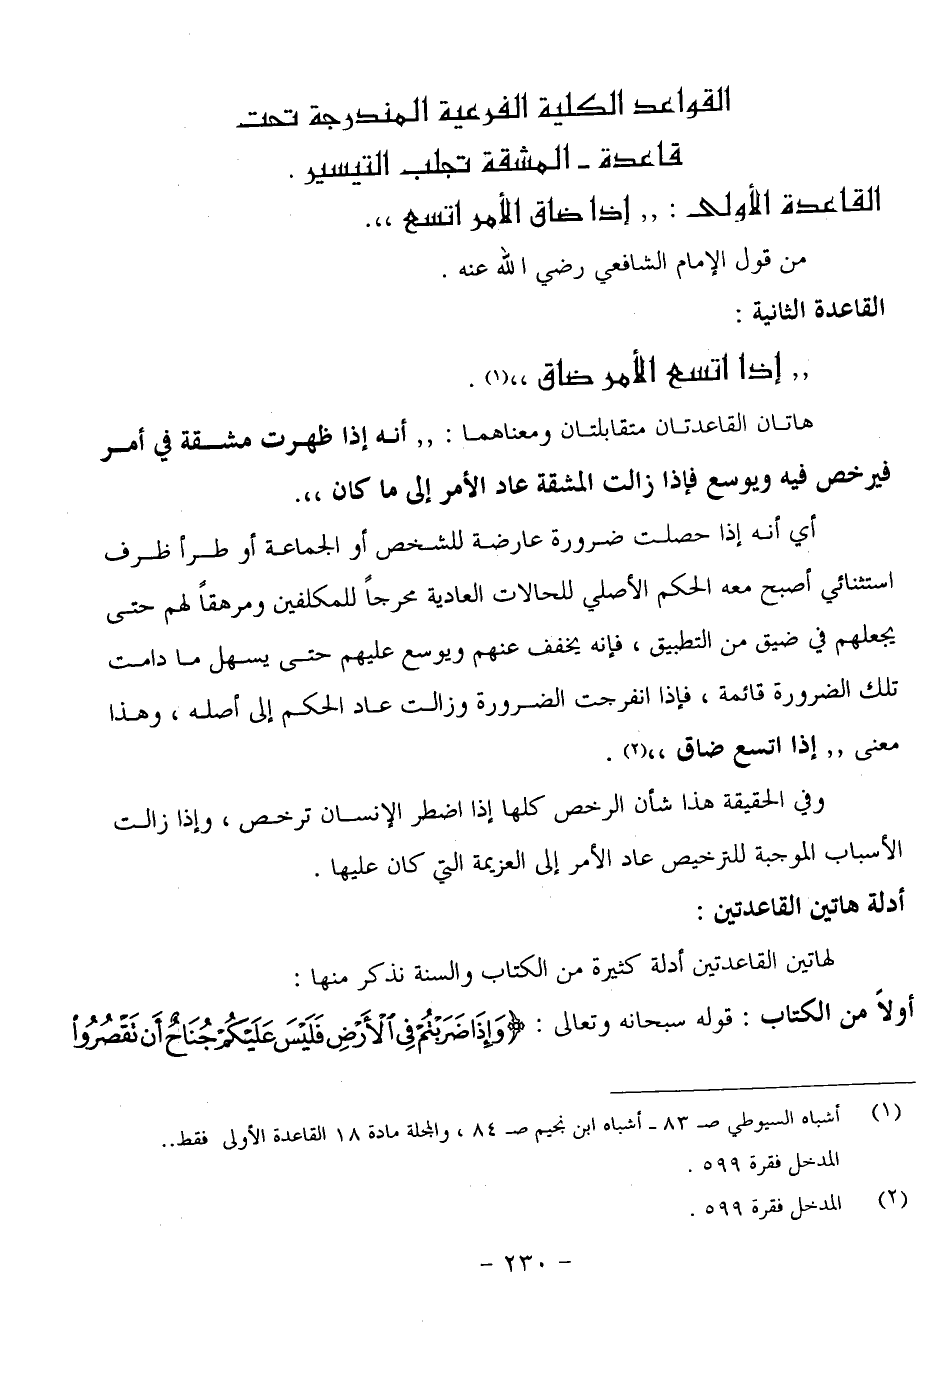 القواعد الكلية الفرعية المندرجة تحت
قاعدة ـ المشقة تجلب التيسير .
القاعدة الأولى : ,, إذا ضاق الأمر اتسع ،،.
من قول الإمام الشافعي رضي الله عنه .
القاعدة الثانية :
,, إذا اتسع الأمر ضاق ،،(١) .
هاتان القاعدتان متقابلتان ومعناهما : ,, أنه إذا ظهرت مشقة في أمر
فيرخص فيه ويوسع فإذا زالت المشقة عاد الأمر إلى ما كان ،،.
أي أنه إذا حصلت ضرورة عارضة للشخص أو الجماعة أو طرأ ظرف
استثنائي أصبح معه الحكم الأصلي للحالات العادية محرجاً للمكلفين ومرهقاً لهم حتى
يجعلهم في ضيق من التطبيق ، فإنه يخفف عنهم ويوسع عليهم حتى يسهل ما دامت
تلك الضرورة قائمة ، فإذا انفرجت الضرورة وزالت عاد الحكم إلى أصله ، وهذا
معنى ,, إذا اتسع ضاق ،،(٢) .
وفي الحقيقة هذا شأن الرخص كلها إذا اضطر الإنسان ترخص ، وإذا زالت
الأسباب الموجبة للترخيص عاد الأمر إلى العزيمة التي كان عليها .
أدلة هاتين القاعدتين :
لهاتين القاعدتين أدلة كثيرة من الكتاب والسنة نذكر منها :
أولاً من الكتاب : قوله سبحانه وتعالى : ﴿وَإِذَا ضَرَبْتُمْ فِي ٱلْأَرْضِ فَلَيْسَ عَلَيْكُمْ جُنَاحٌ أَن تَقْصُرُوا۟
(١) أشباه السيوطي صـ ٨٣ ـ أشباه ابن نجيم صـ ٨٤ ، والمجلة مادة ١٨ القاعدة الأولى فقط..
المدخل فقرة ٥٩٩ .
(٢) المدخل فقرة ٥٩٩ .
- ٢٣٠ -